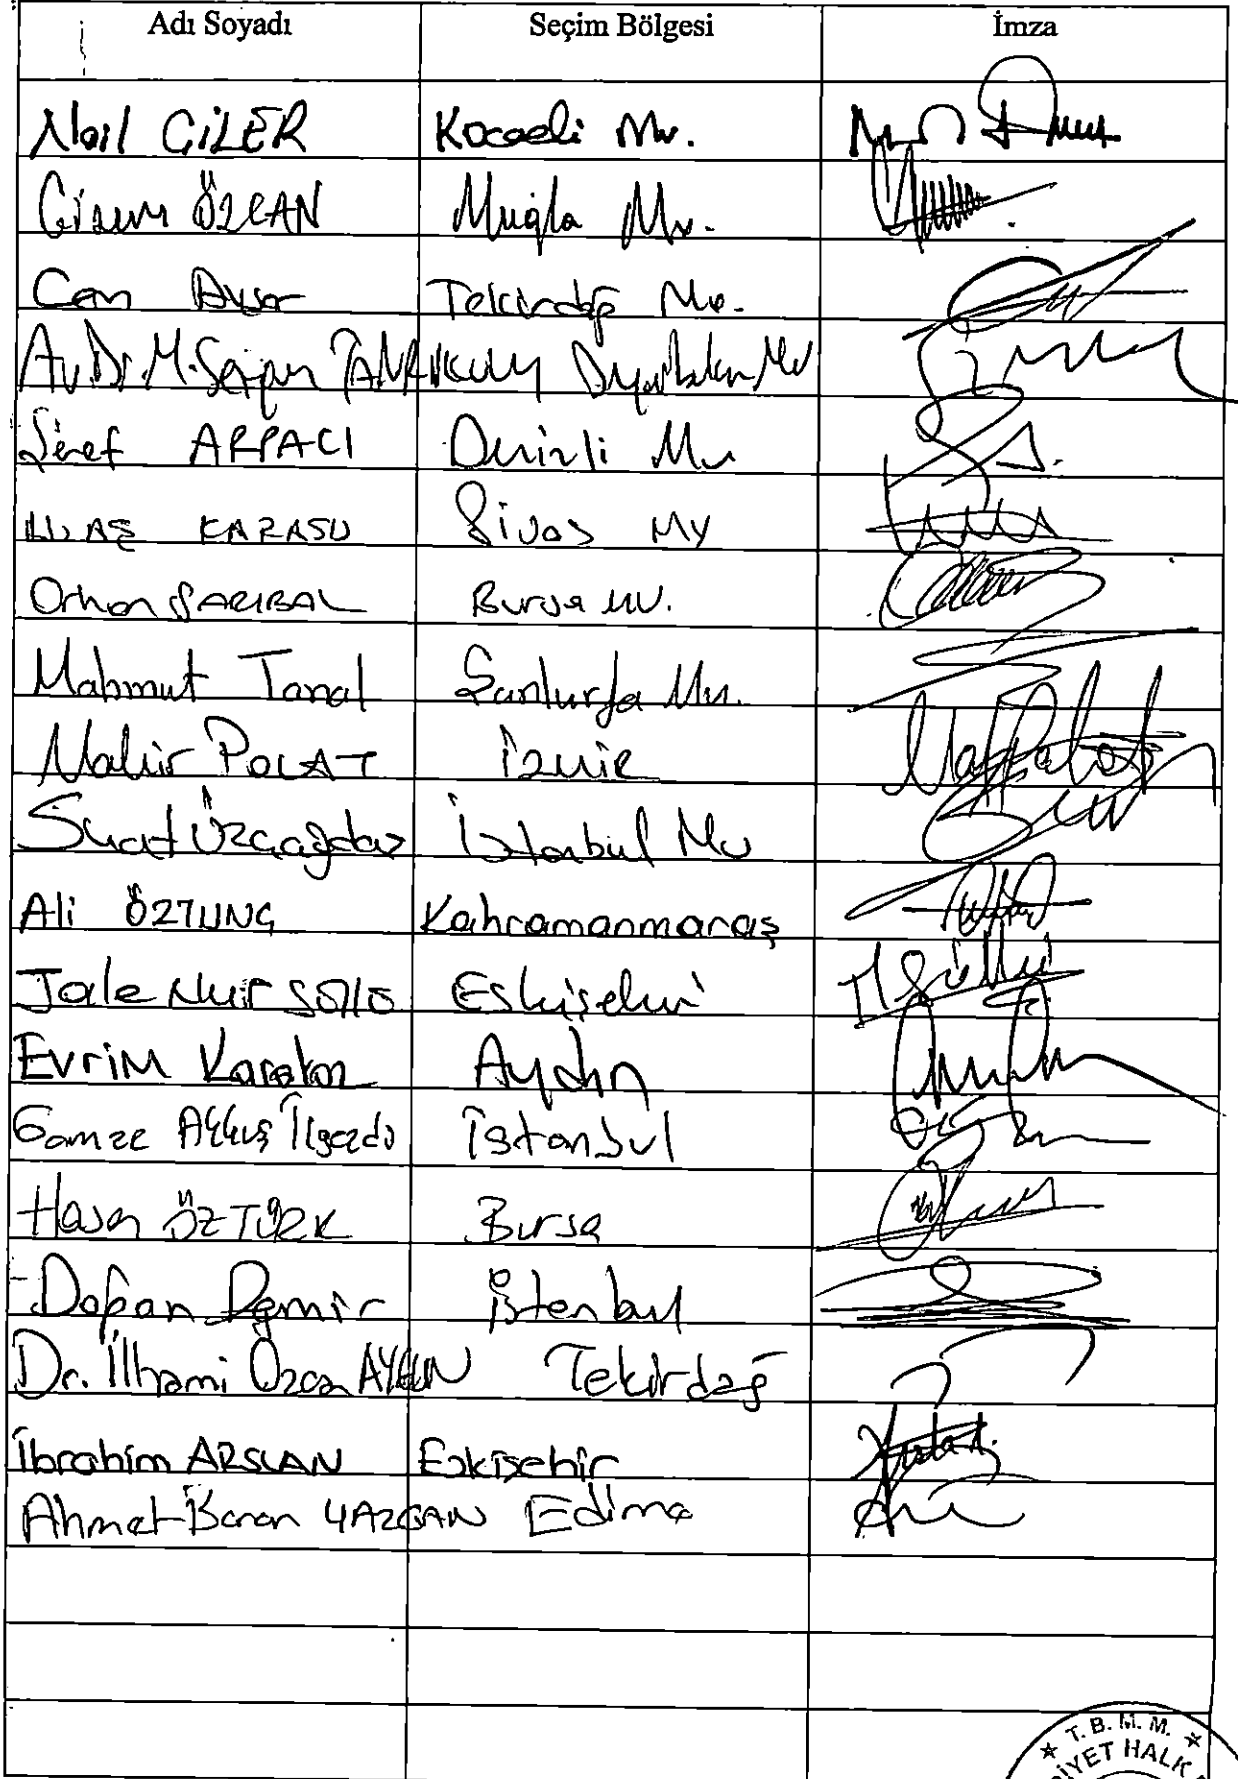 Adı Soyadı Seçim Bölgesi İmza
Nail ÇİLER Kocaeli Mv.
Gizem ÖZCAN Muğla Mv.
Cem Avşar Tekirdağ Mv.
Av. Dr. M. Sezgin TANRIKULU Diyarbakır Mv
Şeref ARPACI Denizli Mv
ULAŞ KARASU Sivas MV
Orhan SARIBAL Bursa MV.
Mahmut Tanal Şanlıurfa Mv.
Mahir POLAT İzmir
Suat Özçağdaş İstanbul Mv
Ali ÖZTUNÇ Kahramanmaraş
Jale Nur SÜLLÜ Eskişehir
Evrim Karakoz Aydın
Gamze Akkuş İlgezdi İstanbul
Hasan ÖZTÜRK Bursa
Doğan Demir İstanbul
Dr. İlhami Özcan AYGUN Tekirdağ
İbrahim ARSLAN Eskişehir
Ahmet Baran YAZGAN Edirne
T.B.M.M.
HALK